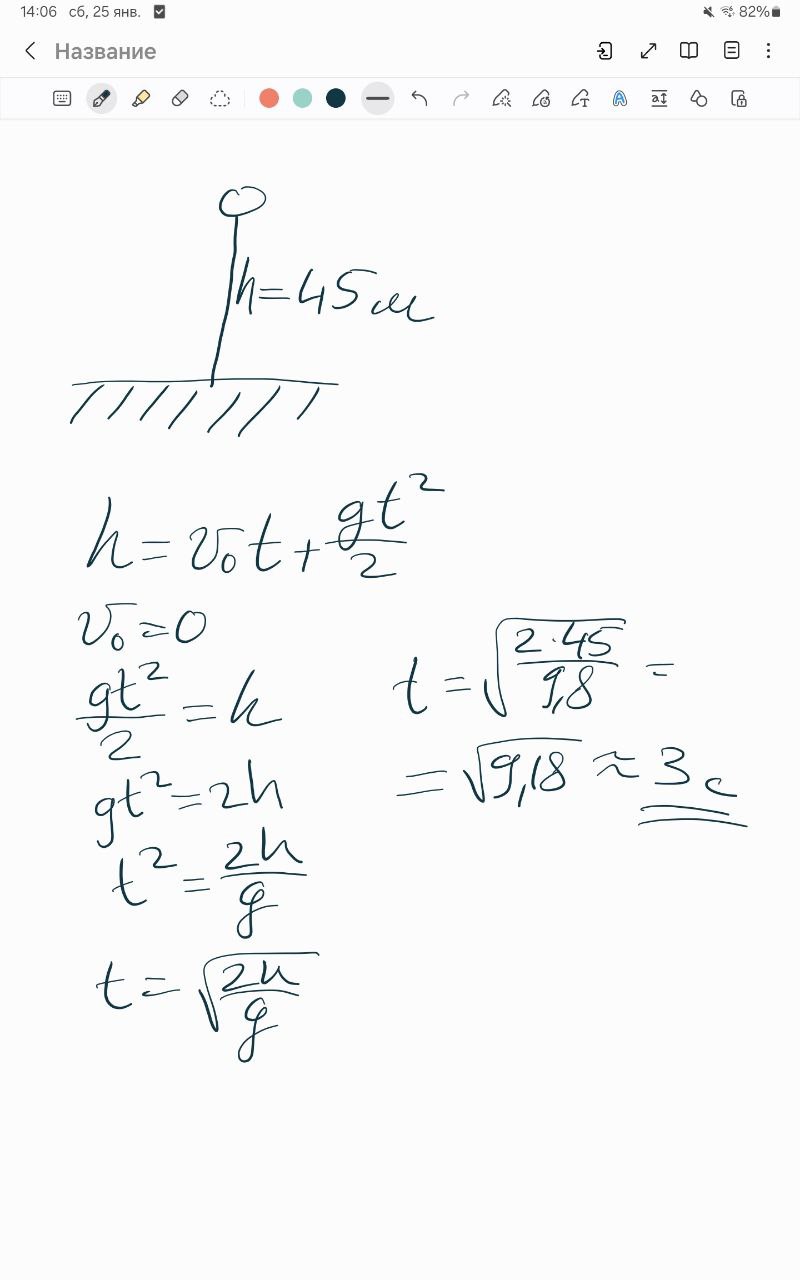 14:06 сб, 25 янв. 82%
Название
h=45м
h=v₀t+gt²/2
v₀=0
gt²/2=h
gt²=2h
t²=2h/g
t=√(2h/g)
t=√(2·45/9,8)=
=√9,18≈3с